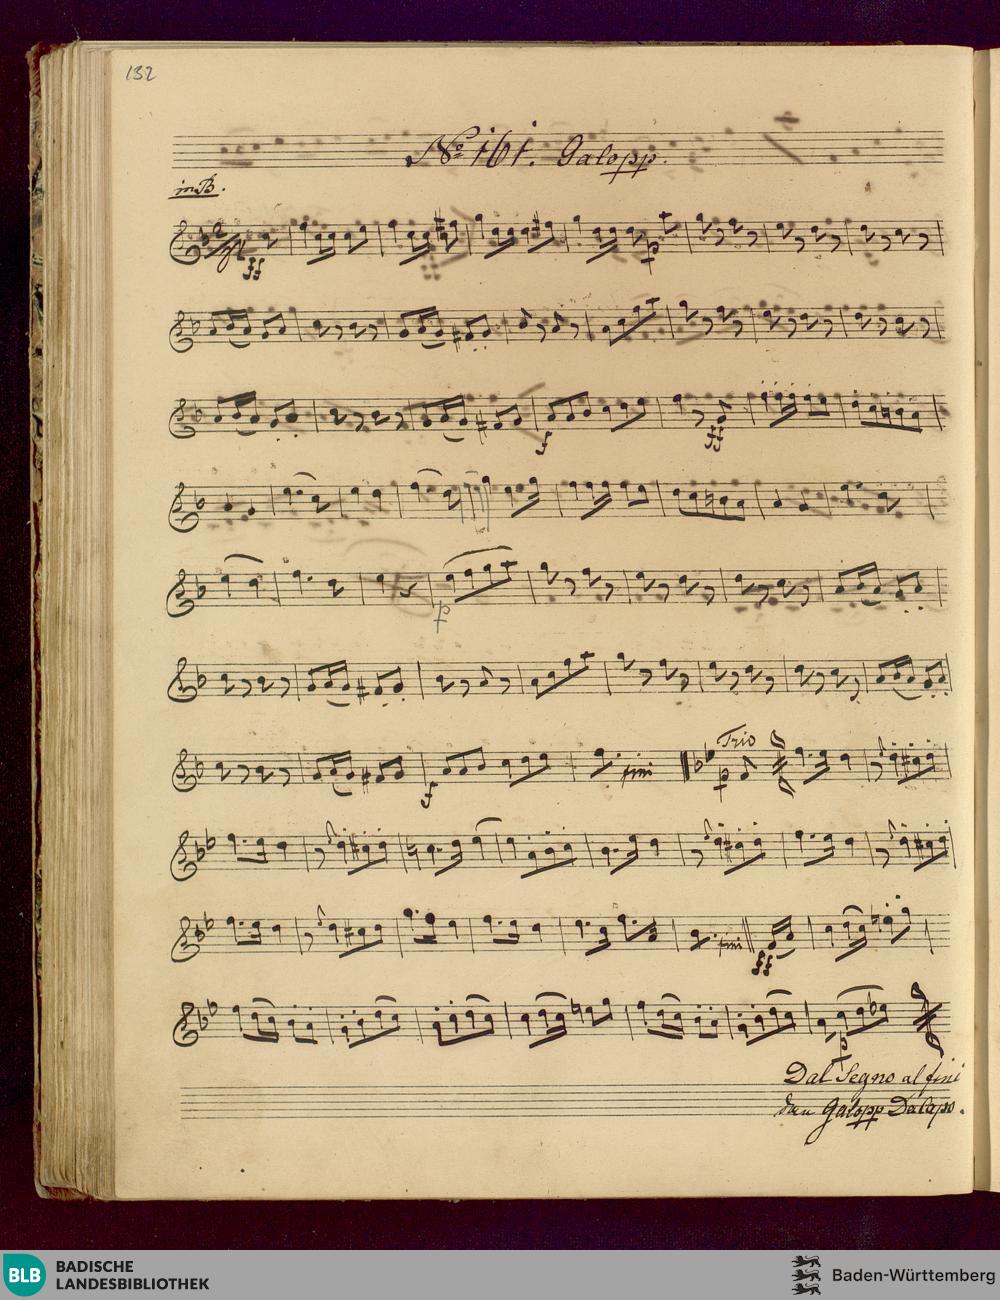 132
No. 161. Galopp.
in B.
ff
p
f
ff
p
Trio
f
fini
p
fini
ff
p
Dal Segno al fini
dan Galopp Dacapo.
BLB
BADISCHE
LANDESBIBLIOTHEK
Baden-Württemberg